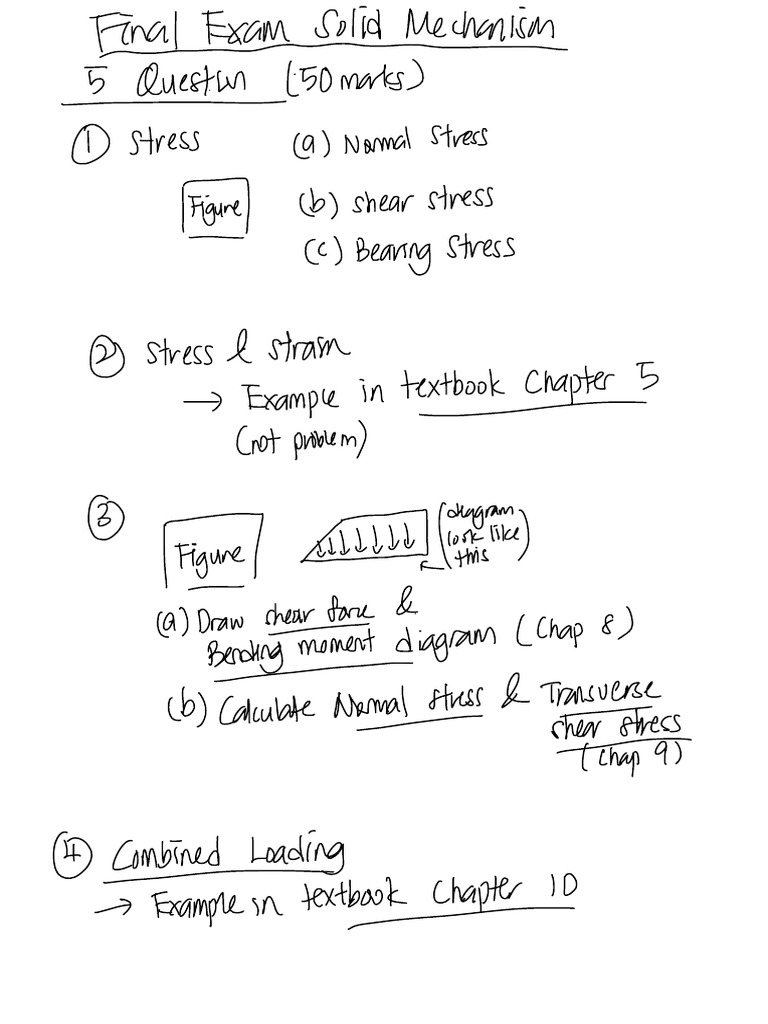 Final Exam Solid Mechanism
5 Questin (50 marks)
① Stress (a) Normal Stress
Figure (b) shear stress
(c) Bearing Stress
② Stress & strain
→ Example in textbook Chapter 5
(not problem)
③
Figure
(diagram
look like
this)
(a) Draw shear force &
Bending moment diagram (Chap 8)
(b) Calculate Normal stress & Transverse
shear stress
(Chap 9)
④ Combined Loading
→ Example in textbook Chapter 10